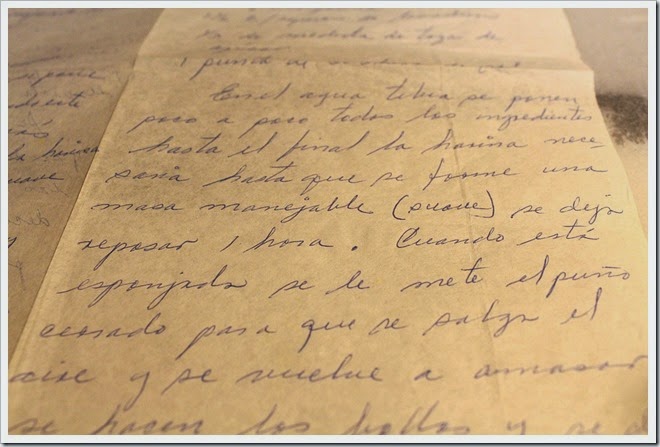 de medida de taza de
1 punta de
En el agua tibia se ponen
poco a poco todos los ingredientes
hasta el final la harina nece-
saria hasta que se forme una
masa manejable (suave) se deja
reposar 1 hora. Cuando está
esponjada se le mete el puño
cerrado para que se salga el
aire y se vuelve a amasar
se hacen los bollos y se